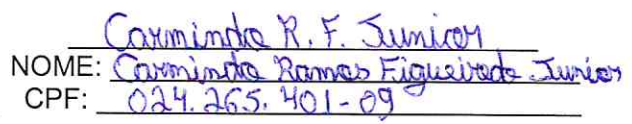 Carmindo R. F. Junior
NOME: Carmindo Ramos Figueiredo Junior
CPF: 024.265.401-09